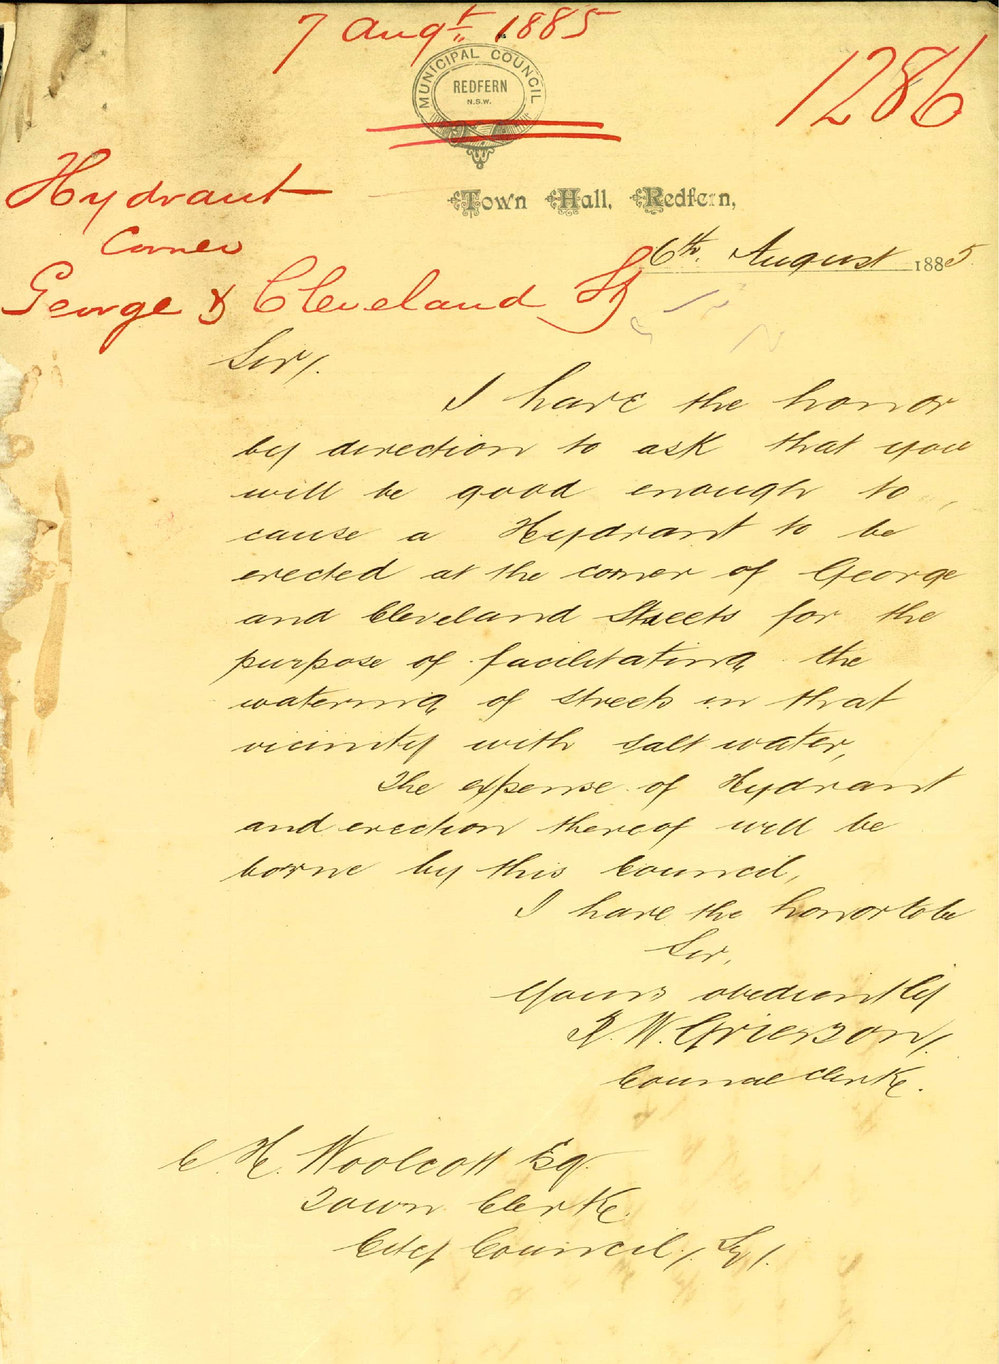 7 Augt. 1885
MUNICIPAL COUNCIL
REDFERN
N.S.W.
1286
Hydrant
Corner
George & Cleveland St
Town Hall, Redfern,
6th. August 1885
Sir/.
I have the honor
by direction to ask that you
will be good enough to
cause a Hydrant to be
erected at the corner of George
and Cleveland Streets for the
purpose of facilitating the
watering of streets in that
vicinity with salt water,
The expense of Hydrant
and erection thereof will be
borne by this Council,
I have the honor to be
Sir,
Yours obediently
W. Grierson/.
Council Clerk.
C. H. Woolcott Esq.
Town Clerk.
City Council,